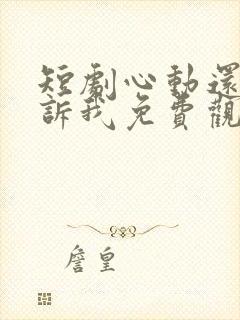 短劇心動還
訴我免費觀
詹皇